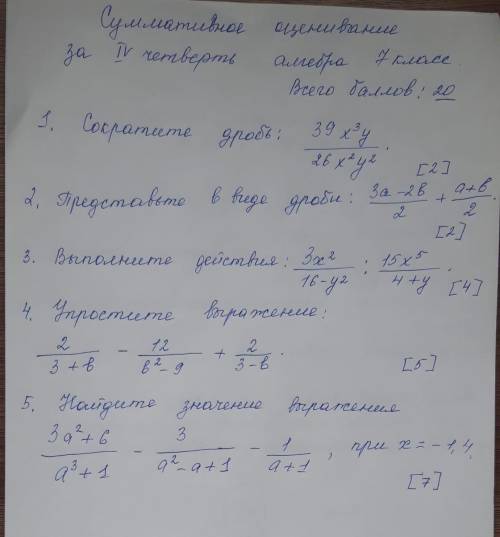 Суммативное оценивание
за IV четверть алгебра 7 класс.
Всего баллов: 20
1. Сократите дробь: 39x³y / 26x²y². [2]
2. Представьте в виде дроби: (3a-2b)/2 + (a+b)/2. [2]
3. Выполните действия: 3x²/(16-y²) : 15x⁵/(4+y). [4]
4. Упростите выражение:
2/(3+b) - 12/(b²-9) + 2/(3-b). [5]
5. Найдите значение выражения
(3a²+6)/(a³+1) - 3/(a²-a+1) - 1/(a+1), при x = -1,4. [7]